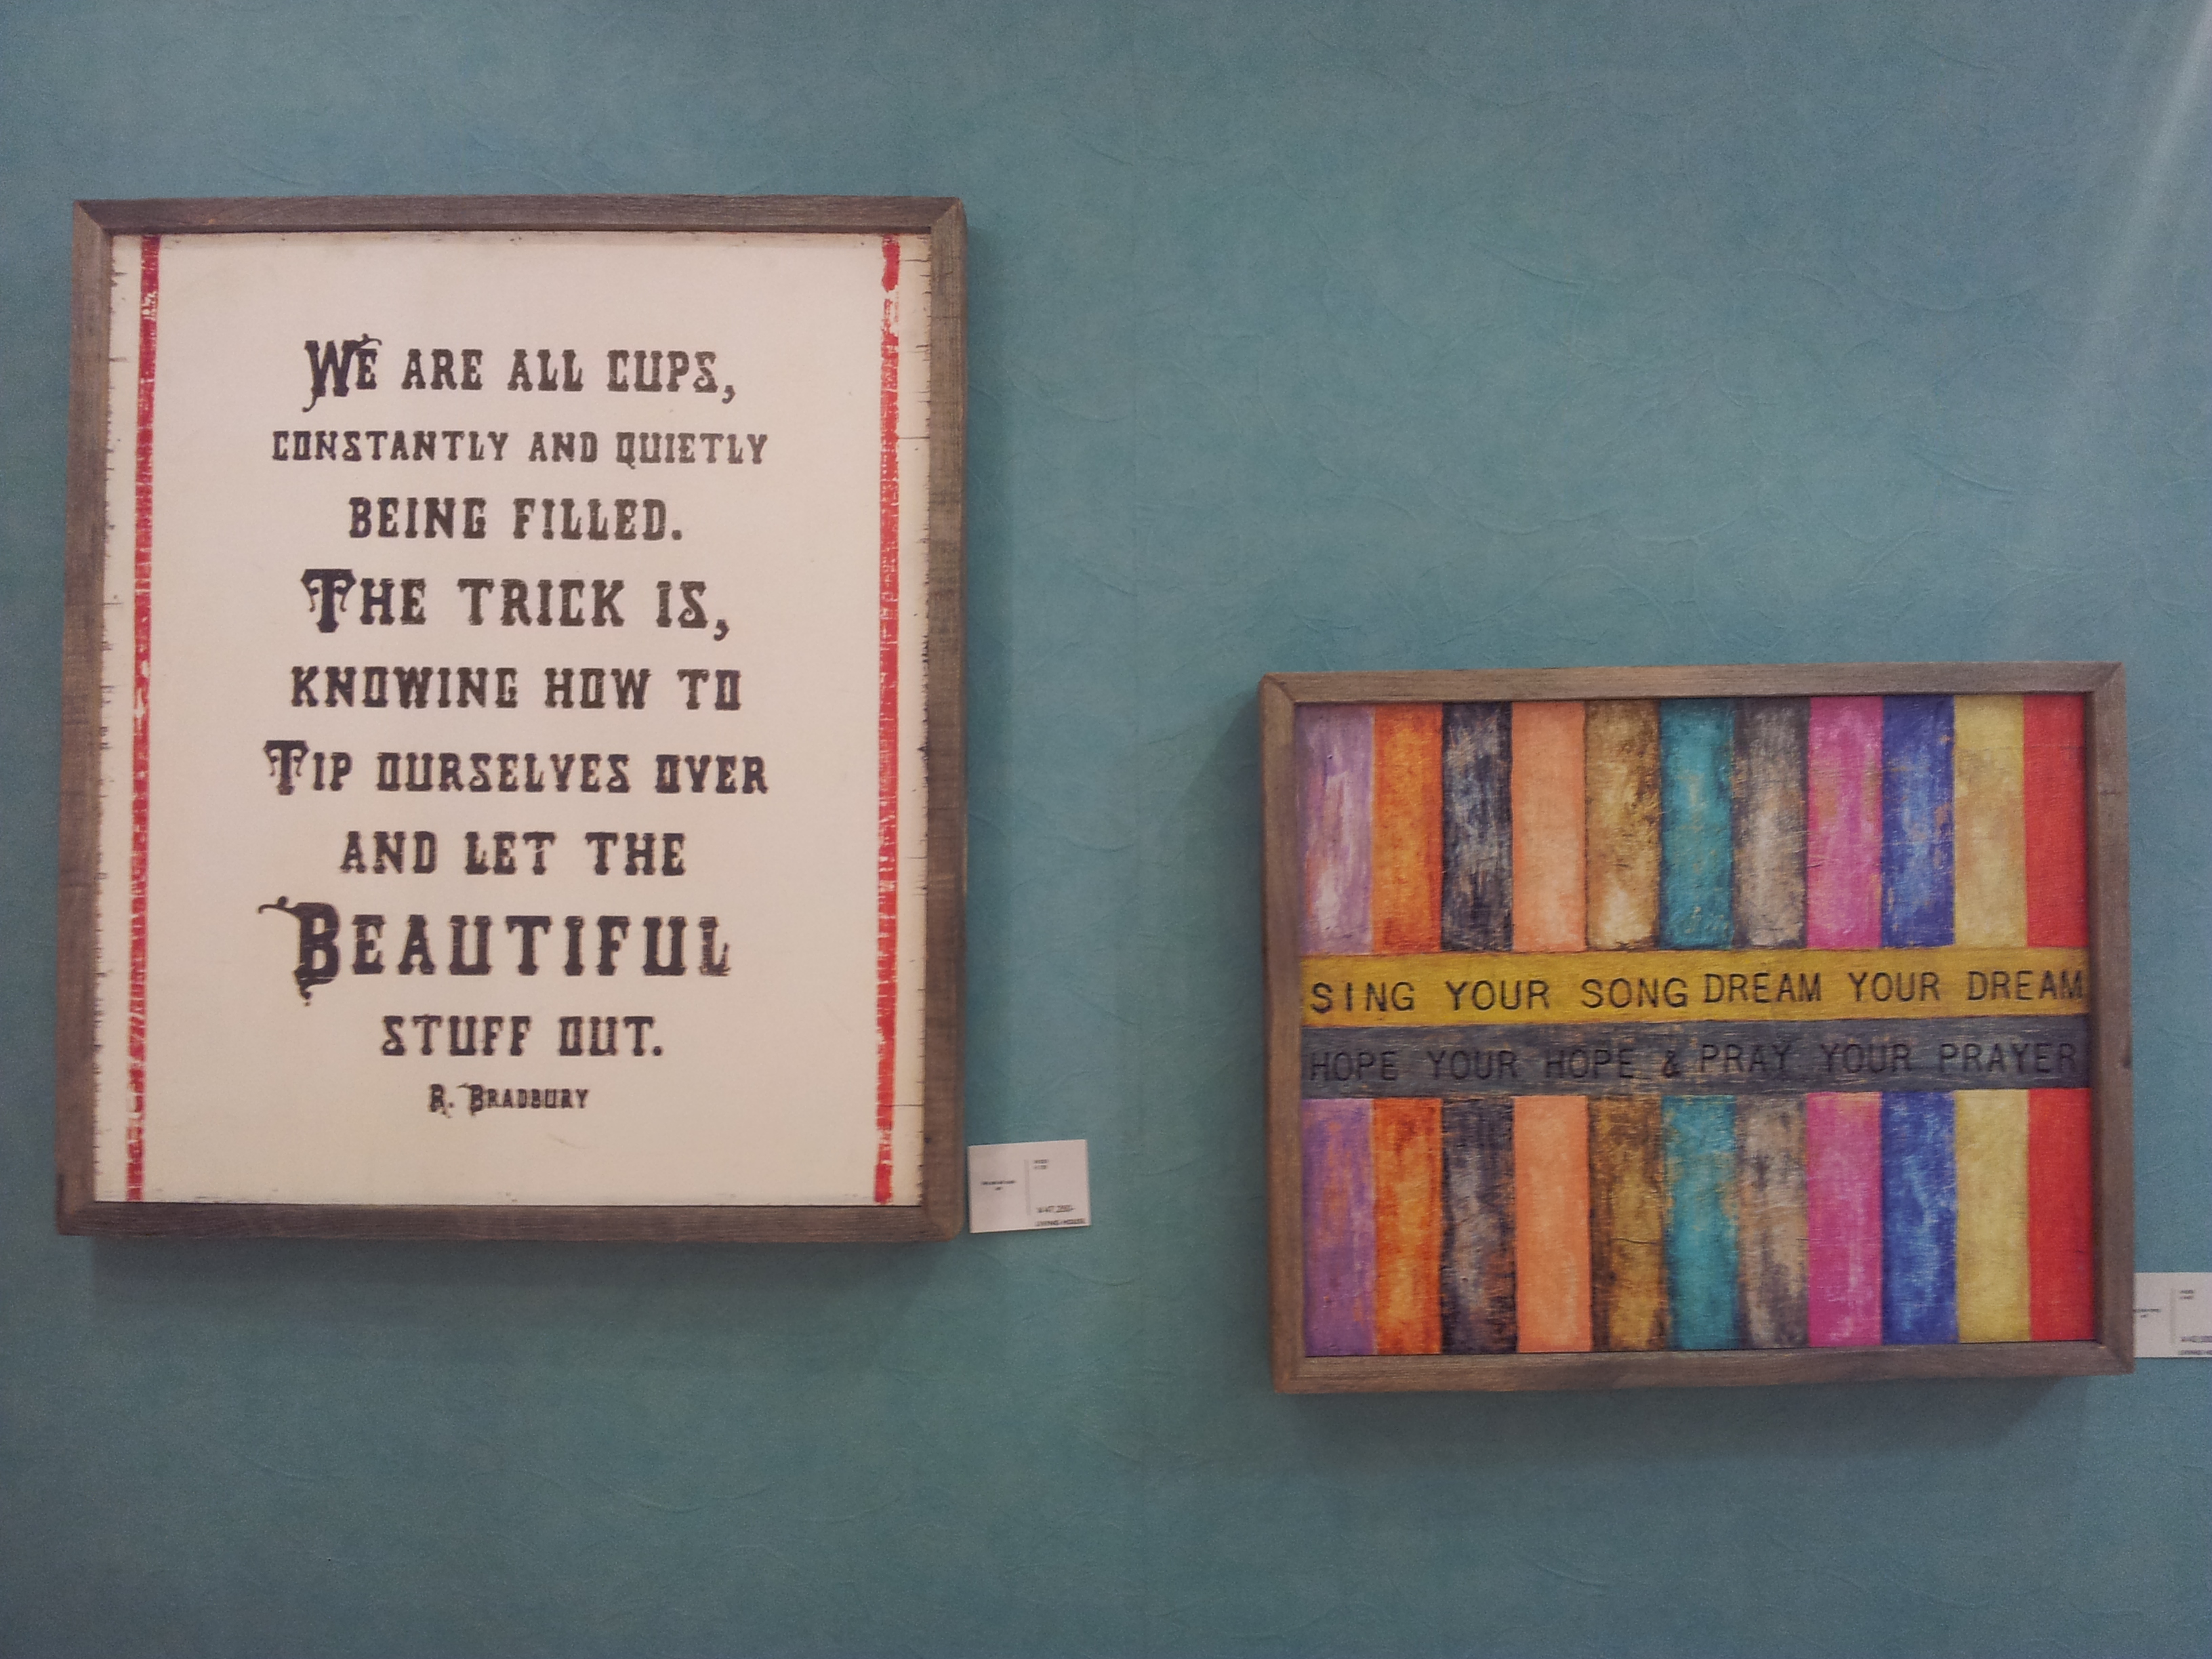 WE ARE ALL CUPS,
CONSTANTLY AND QUIETLY
BEING FILLED.
THE TRICK IS,
KNOWING HOW TO
TIP OURSELVES OVER
AND LET THE
BEAUTIFUL
STUFF OUT.
R. BRADBURY
SING YOUR SONG DREAM YOUR DREAM
HOPE YOUR HOPE & PRAY YOUR PRAYER